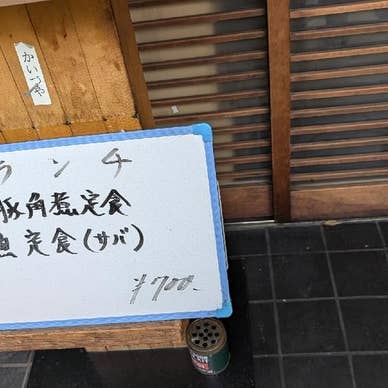 かいづや
ランチ
豚角煮定食
魚定食(サバ)
¥700.